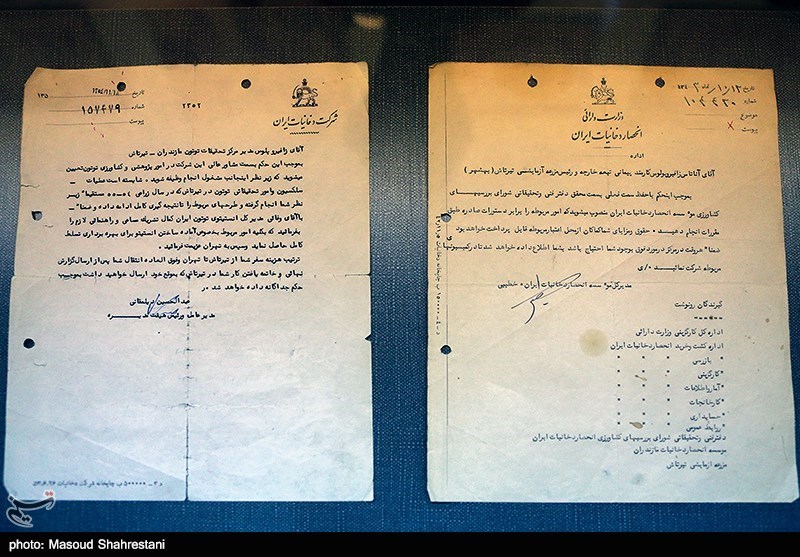 شرکت دخانیات ایران
۲۳۵۲
تاریخ
شماره ۱۵۷۴۷۹
پیوست
۱۳۵
آقای زافیروپلوس مدیر مرکز تحقیقات توتون مازندران - تیرتاش
بموجب این حکم بسمت مشاور عالی این شرکت در امور پژوهشی و کشاورزی توتون تعیین
میشوید که زیر نظر اینجانب مشغول انجام وظیفه شوید. شایسته است عملیات -
سلکسیون و امور تحقیقاتی توتون در تیرتاش که در سال زراعی مستقیما" زیر
نظر شما انجام گرفته و طرحهای مربوط را تا نتیجه گیری کامل ادامه داده و ضمنا"
با آقای وفائی مدیر کل انستیتوی توتون ایران کمال تشریک مساعی و راهنمائی لازم را
بفرمائید که بکلیه امور مربوط بخصوص آماده ساختن انستیتو برای بهره برداری تسلط
کامل حاصل نماید و سپس به تهران عزیمت فرمائید.
ترتیب هزینه سفر شما از تیرتاش تا تهران و فوق العاده انتقال شما پس از ارسال گزارش
نهائی و خاتمه یافتن کار شما در تیرتاش که بموقع خود ارسال خواهید داشت بموجب
حکم جداگانه داده خواهد شد.
عبدالحسین
مدیر عامل و رئیس هیئت مدیره
چاپخانه شرکت دخانیات
وزارت دارائی
انحصار دخانیات ایران
اداره
تاریخ
شماره ۱۰۴۴۲۰
موضوع
پیوست
آقای آناناس زافیروپولوس کارمند پیمانی تبعه خارجه و رئیس مزرعه آزمایشی تیرتاش ( بهشهر )
بموجب اینحکم با حفظ سمت فعلی بسمت محقق دفتر فنی و تحقیقاتی شورای بررسیهای
کشاورزی موسسه انحصار دخانیات ایران منصوب میشوید که امور مربوطه را برابر دستورات صادره طبق
مقررات انجام دهید. حقوق و مزایای شما کماکان از محل اعتبار مربوطه قابل پرداخت خواهد بود
ضمنا" هر وقت در مرکز در مورد توتن بوجود شما احتیاج باشد بشما اطلاع داده خواهد شد تا در کمیسیونهای
مربوطه شرکت نمائید.
مدیر کل موسسه انحصار دخانیات ایران - خطیبی
گیرندگان رونوشت
اداره کل کارگزینی وزارت دارائی
اداره کشت و خرید انحصار دخانیات ایران
" بازرسی
" کارگزینی
" آمار و اطلاعات
" کارخانجات
" حسابداری
" روابط عمومی
دفتر فنی و تحقیقاتی شورای بررسیهای کشاورزی انحصار دخانیات ایران
موسسه انحصار دخانیات مازندران
مزرعه آزمایشی تیرتاش
تسنیم
photo: Masoud Shahrestani